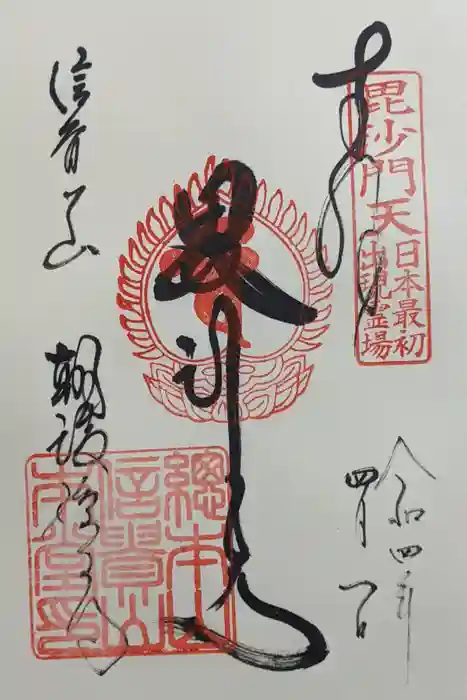 奉拝
毘沙門天
日本最初
出現霊場
令和四年
四月一日
毘沙門天
信貴山
朝護孫子寺
總本山
信貴山
本堂印